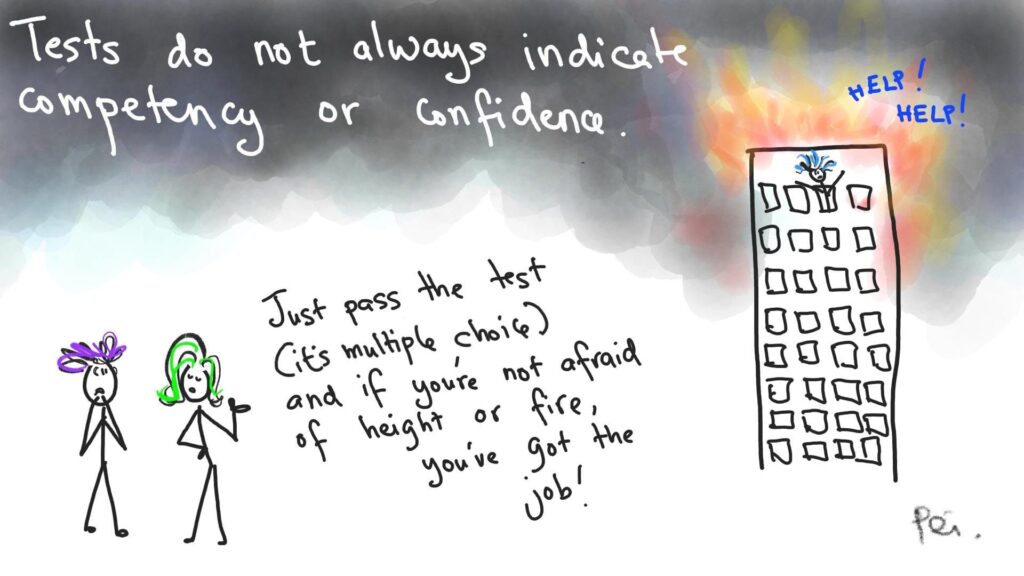 Tests do not always indicate
competency or confidence.
HELP!
HELP!
Just pass the test
(it's multiple choice)
and if you're not afraid
of height or fire,
you've got the
job!
Pei.